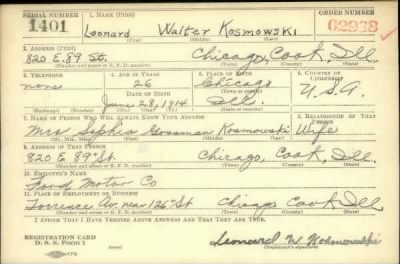 SERIAL NUMBER 1. NAME (Print) ORDER NUMBER
1401 Leonard Walter Kosmowski 02938
(First) (Middle) (Last)
2. ADDRESS (Print)
820 E. 89 St. Chicago, Cook, Ill.
(Number and street or R. F. D. number) (Town) (County) (State)
3. TELEPHONE 4. AGE IN YEARS 5. PLACE OF BIRTH 6. COUNTRY OF CITIZENSHIP
none 26 Chicago
DATE OF BIRTH (Town or county) U.S.A.
June 28, 1914 Ill.
(Exchange) (Number) (Mo.) (Day) (Yr.) (State or country)
7. NAME OF PERSON WHO WILL ALWAYS KNOW YOUR ADDRESS 8. RELATIONSHIP OF THAT PERSON
Mrs Sophia Kosmowski Wife
(Mr., Mrs., Miss) (First) (Middle) (Last)
9. ADDRESS OF THAT PERSON
820 E. 89th St. Chicago, Cook, Ill.
(Number and street or R. F. D. number) (Town) (County) (State)
10. EMPLOYER'S NAME
Ford Motor Co
11. PLACE OF EMPLOYMENT OR BUSINESS
Torrence Av. near 126th St Chicago Cook Ill
(Number and street or R. F. D. number) (Town) (County) (State)
I AFFIRM THAT I HAVE VERIFIED ABOVE ANSWERS AND THAT THEY ARE TRUE.
REGISTRATION CARD
D. S. S. Form 1 Leonard W Kosmowski